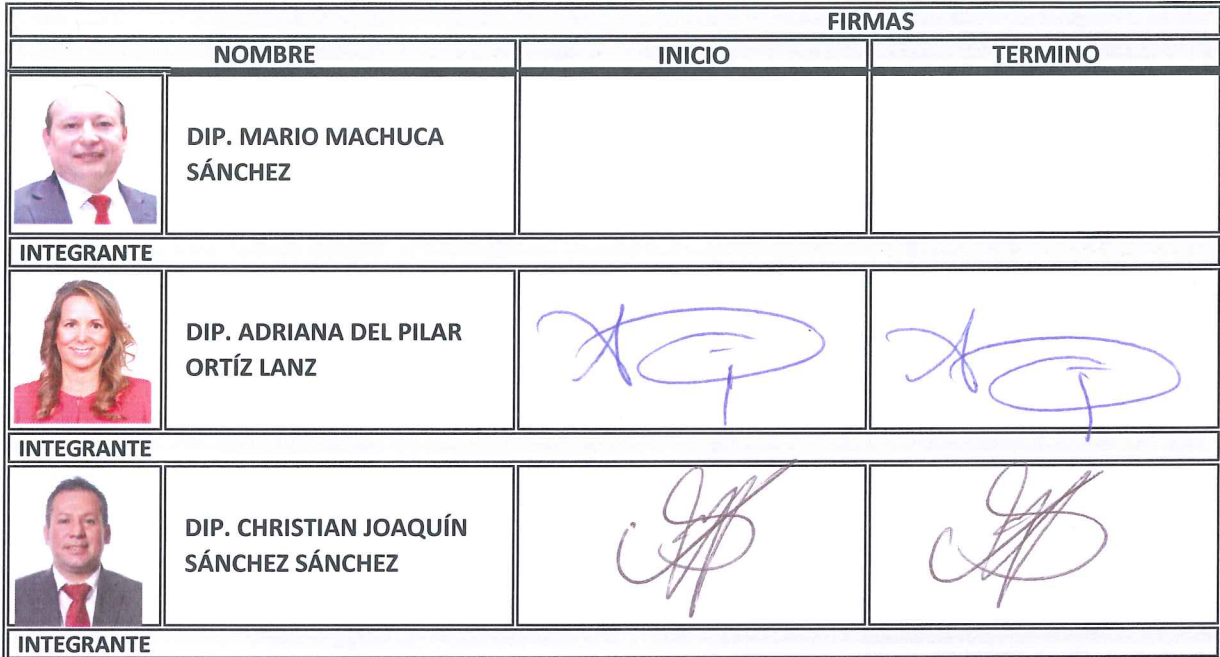 FIRMAS
NOMBRE INICIO TERMINO
DIP. MARIO MACHUCA
SÁNCHEZ
INTEGRANTE
DIP. ADRIANA DEL PILAR
ORTÍZ LANZ
INTEGRANTE
DIP. CHRISTIAN JOAQUÍN
SÁNCHEZ SÁNCHEZ
INTEGRANTE